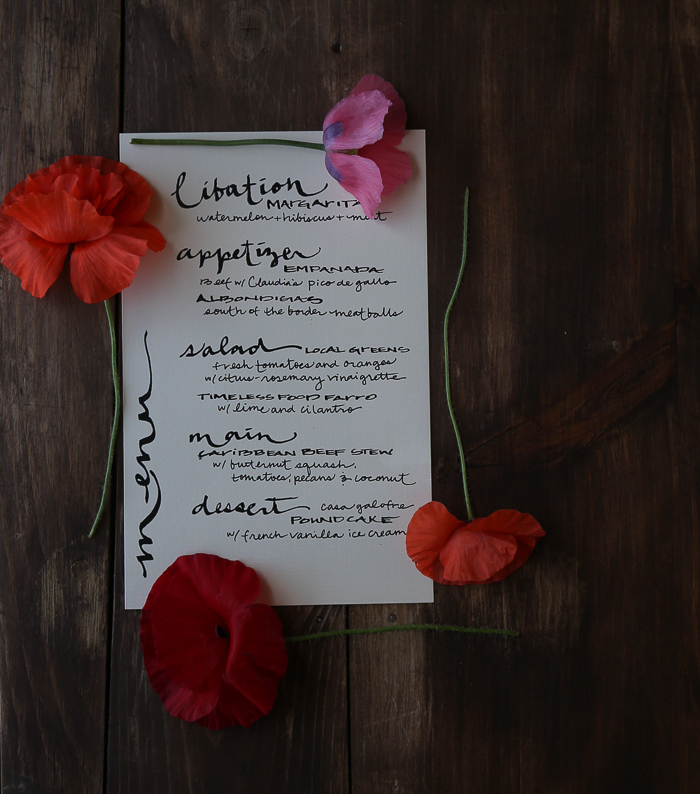 menu
libation
MARGARITA
watermelon + hibiscus + mint
appetizer
EMPANADA
Beef w/ Claudia's pico de gallo
ALBONDIGAS
south of the border meatballs
salad LOCAL GREENS
fresh tomatoes and oranges
w/ citrus-rosemary vinaigrette
TIMELESS FOOD FARRO
w/ lime and cilantro
main
CARIBBEAN BEEF STEW
w/ butternut squash,
tomatoes, pecans & coconut
dessert casa galofre
POUND CAKE
w/ french vanilla ice cream